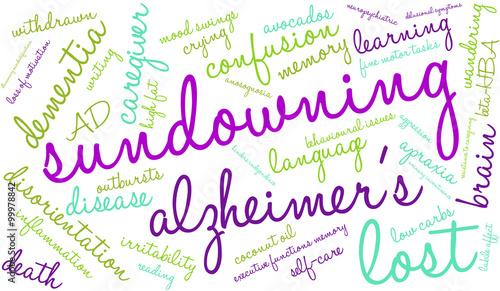 withdrawn
mood swings
avocados
neuropsychiatric
delusional symptoms
crying
confusion
learning
wandering
dementia
writing
caregiver
memory
fine motor tasks
loss of motivation
high fat
anosognosia
beta-HBA
AD
sundowning
behavioural issues
aggression
language
apraxia
brain
outbursts
disease
alzheimer's
disorientation
inflammation
irritability
coconut oil
low carbs
lost
labile affect
death
reading
executive functions memory
self-care
Adobe Stock | 99978842